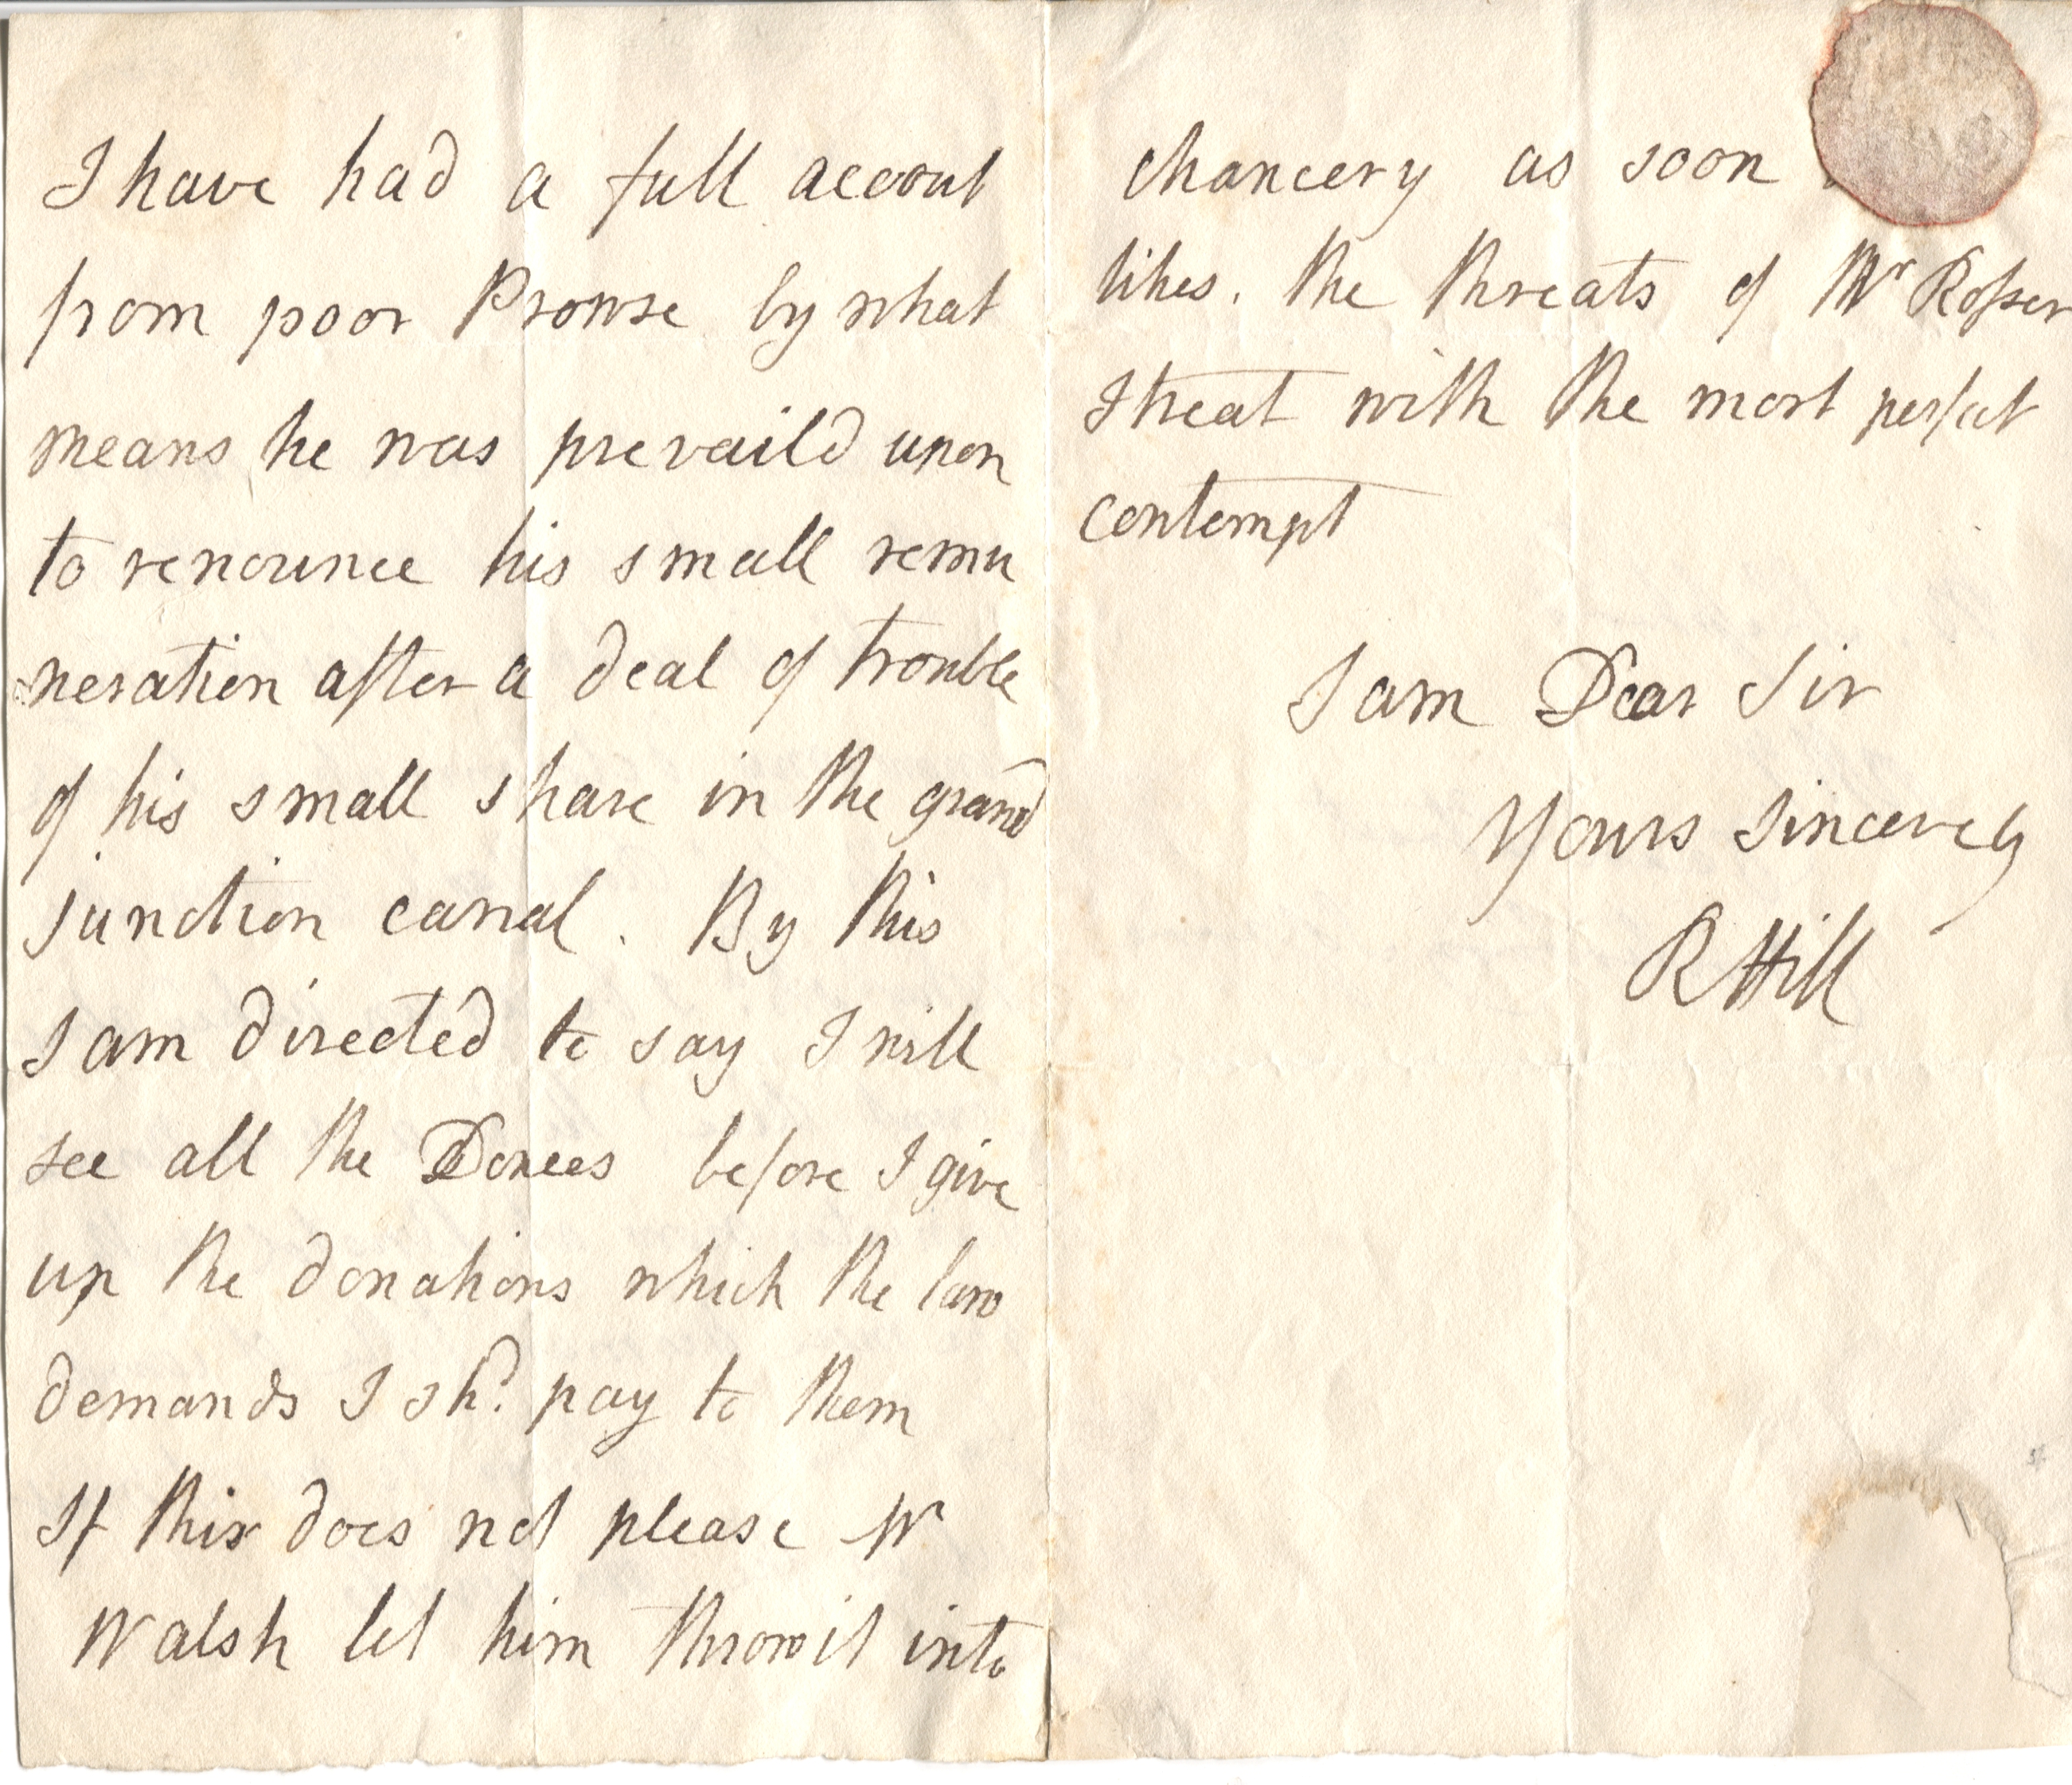 I have had a full accout
from poor Prowse by what
means he was prevaild upon
to renounce his small remu
neration after a deal of trouble
of his small share in the grand
junction canal. By this
I am directed to say I will
see all the Donees before I give
up the donations which the law
demands I shd. pay to them
If this does not please Mr
Walsh let him throw it into
chancery as soon
likes. the threats of Mr Roſser
I treat with the most perfect
contempt
I am Dear Sir
Yours Sincerely
R Hill